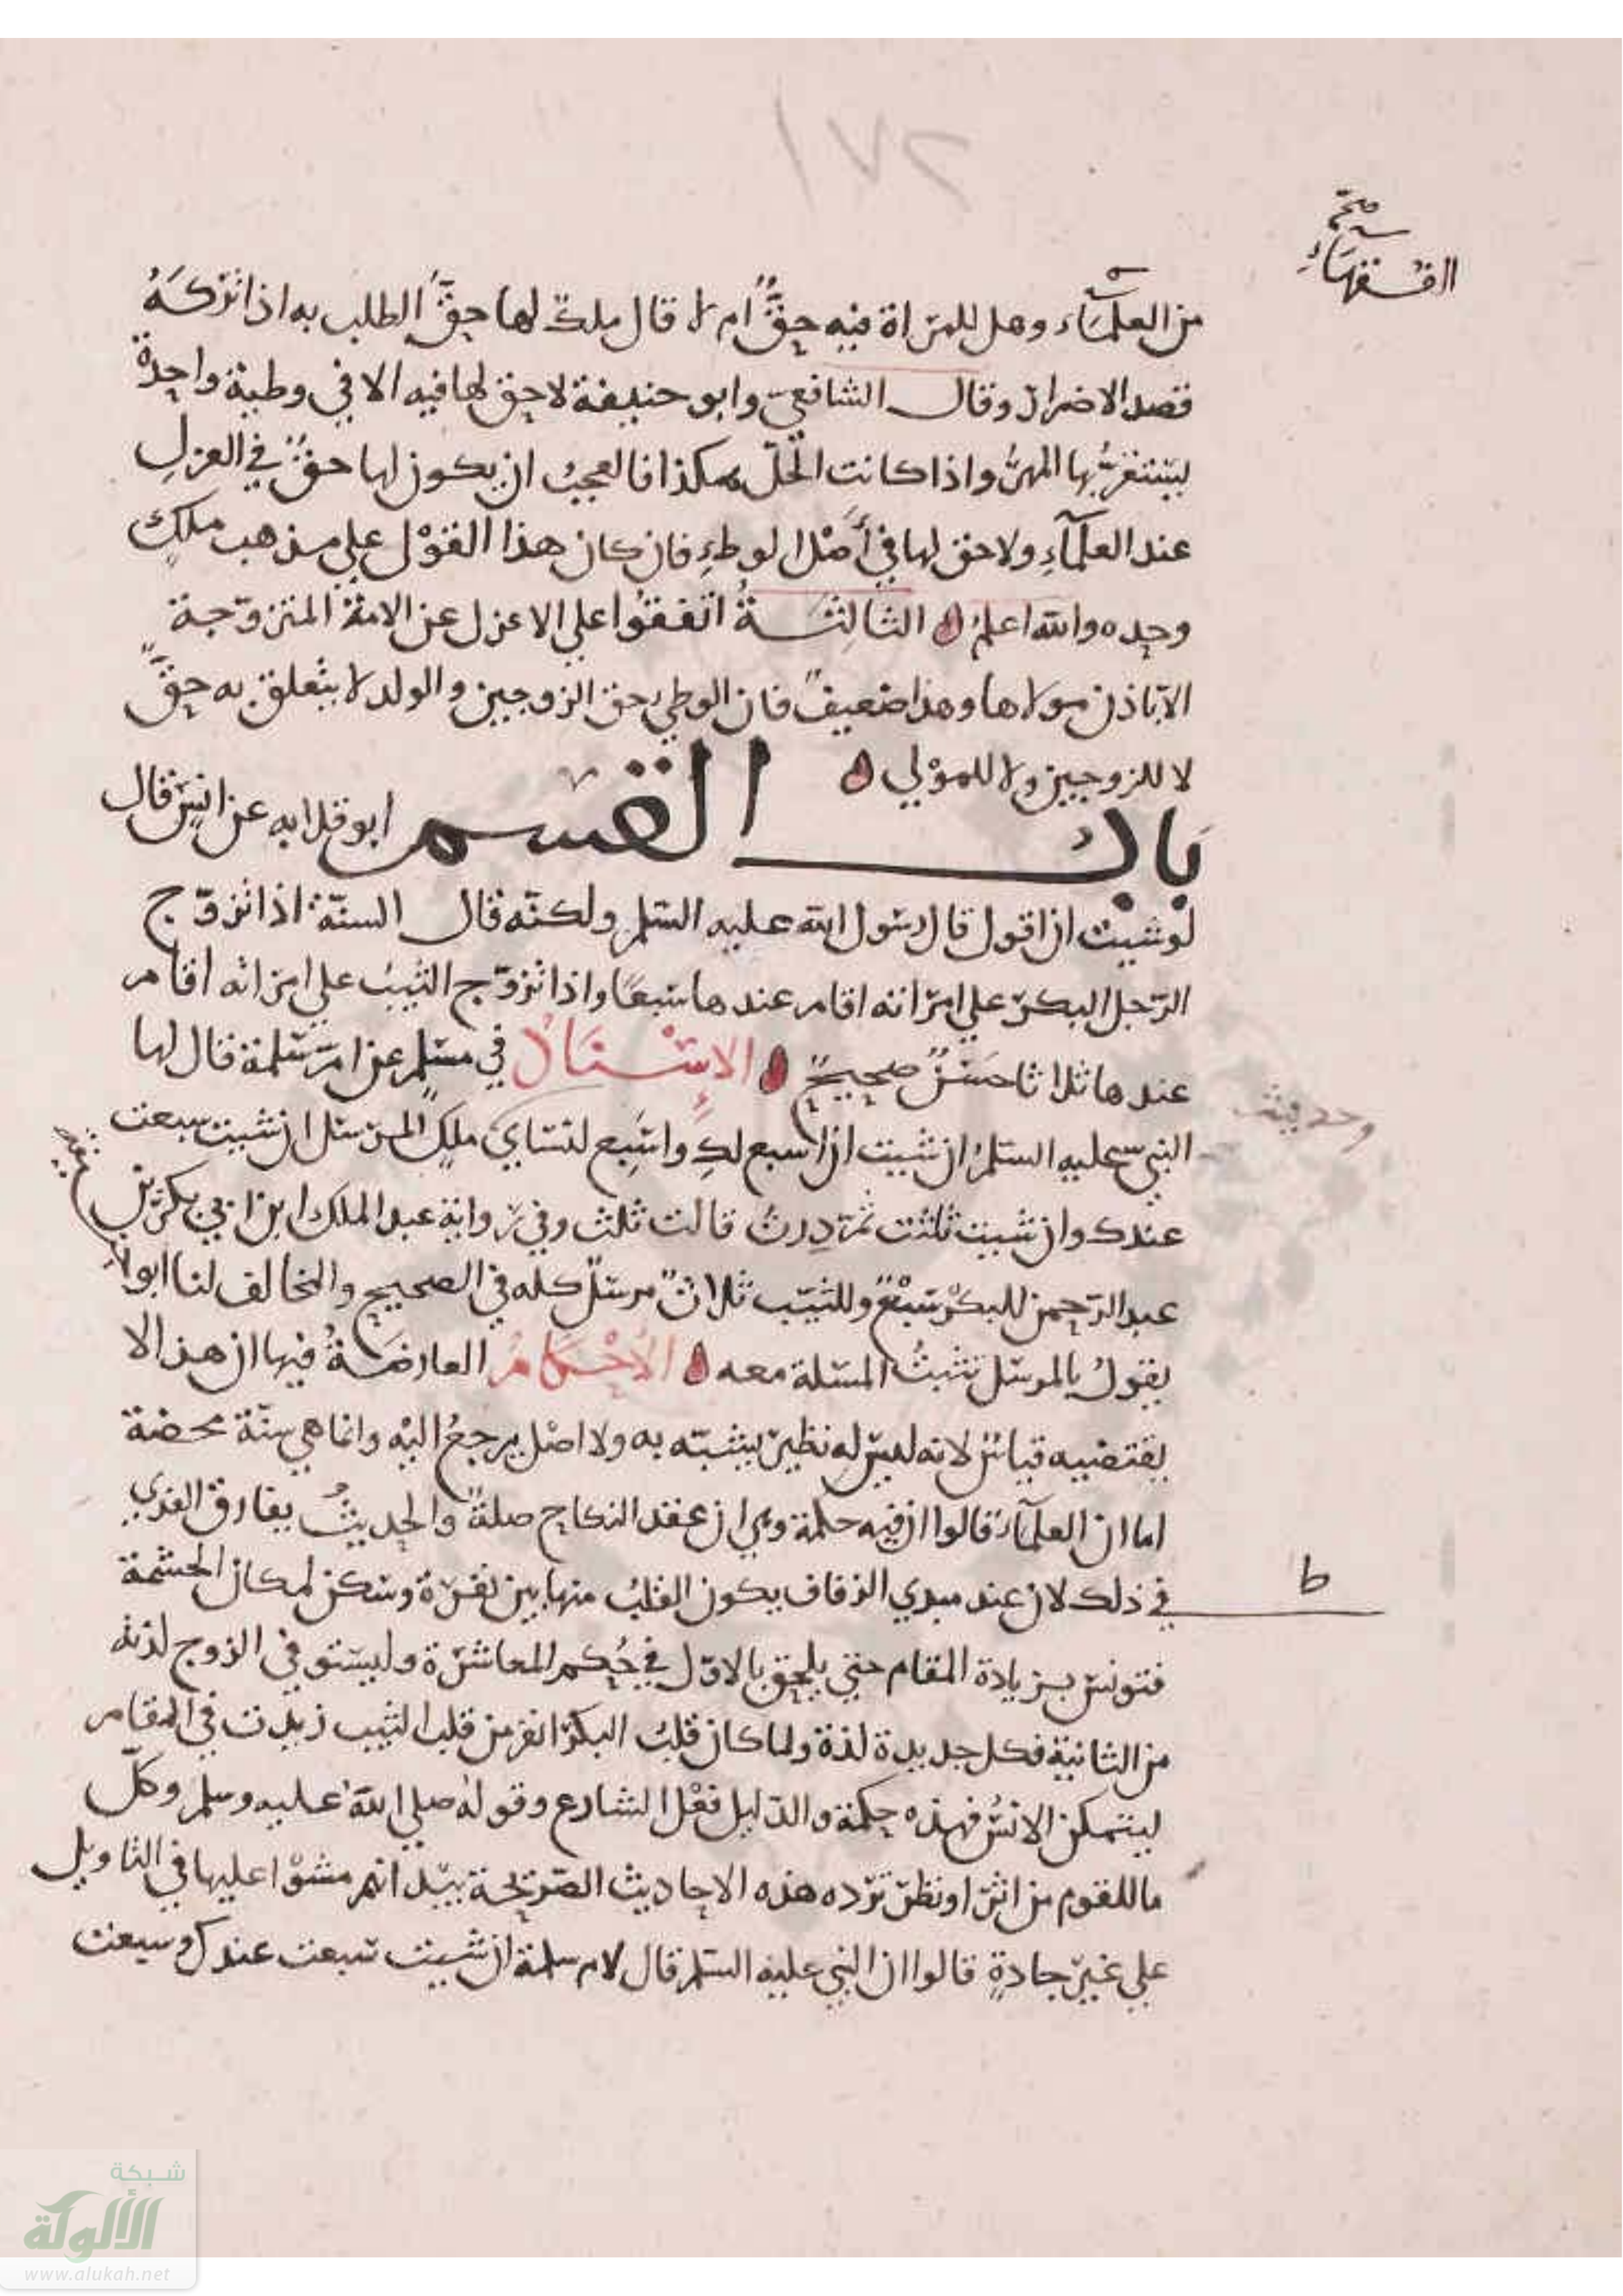 صح
الفقهاء
من العلمآء وهل للمراة فيه حقٌّ ام لا قال ملك لها حقُّ الطلب به اذا تركهُ
قصد الاضرار وقال الشافعي وابو حنيفة لا حق لها فيه الا في وطية واحدة
يستقرّ بها المهر واذا كانت الحال هكذا فالعجبُ ان يكون لها حقٌ في العزلِ
عند العلمآءِ ولا حق لها في أصْل الوطءِ فان كان هذا القوْل على مذهب ملكٍ
وحده والله اعلمُ الثالثـــةُ اتفقُوا على الا عزل عن الامة المتزوّجة
الا باذن مولاها وهذا ضعيفٌ فان الوطيَ حق الزوجين والولد لا يتعلق به حقٌّ
لا للزوجين ولا للموْلى
بابُ القسم ابو قلابه عن انس قال
لو شيت ان اقول قال رسول الله عليه السلم ولكنّه قال السنّة اذا تزوّج
الرّجل البكر على امراته اقام عندها سبعًا واذا تزوّج الثيبُ على امراته اقام
عندها ثلاثا حسَنٌ صحيحٌ الإسْنَادُ في مسلم عن ام سلمة قال لها
وحديث
النبي عليه السلمُ ان شيت ان اسبع لكِ واسَبِع لنساي ملكٍ المرسل ان شيت سبعت
عندك وان شيت ثلثت ثمّ دِرتُ قالت ثلث وفي رواية عبد الملك ابن ابي بكر بن
عبد الرّحمن للبكر سَبْعٌ وللثيّب ثلاثٌ مرسلٌ كله في الصحيح والمخالف لنا ابو لا
يقولُ بالمرسل نثبتُ المسلة معه الأحْكَامُ العارضَةُ فيها ان هذا لا
يقتضيه قياسٌ لانه ليس له نظير يشبّه به ولا اصْل يرجعُ اليْه وانما هي سنّة محضة
اما ان العلمآءَ قالوا ان فيه حكمة وهي ان عقد النكاح صلةٌ والحديثُ يفارق القديم
ط
في ذلك لان عند مبدي الزفاف يكون القلبُ منها بين نفرة وسكن لمكان الحشمة
فتونس بزيادة المقام حتى يلحق بالاوّل في حُكم المعاشرة وليستوفي الزوج لذته
من الثانية فكل جديدة لذة ولما كان قلبُ البكر انفر من قلب الثيب زيدت في المقام
ليتمكن الانسُ فهذه حِكمة والدّليل فعْل الشارع وقولهُ صلي اللهُ عليه وسلم وكلّ
ما للقوم من اثر او نظر تردّه هذه الاحاديث الصّريحة بيد انهم مشوْا عليها في التاويل
على غير جادةٍ قالوا ان النبي عليه السلم قال لام سلمة ان شيت سبعت عندك وسبعت
شبكة
الألوكة
www.alukah.net